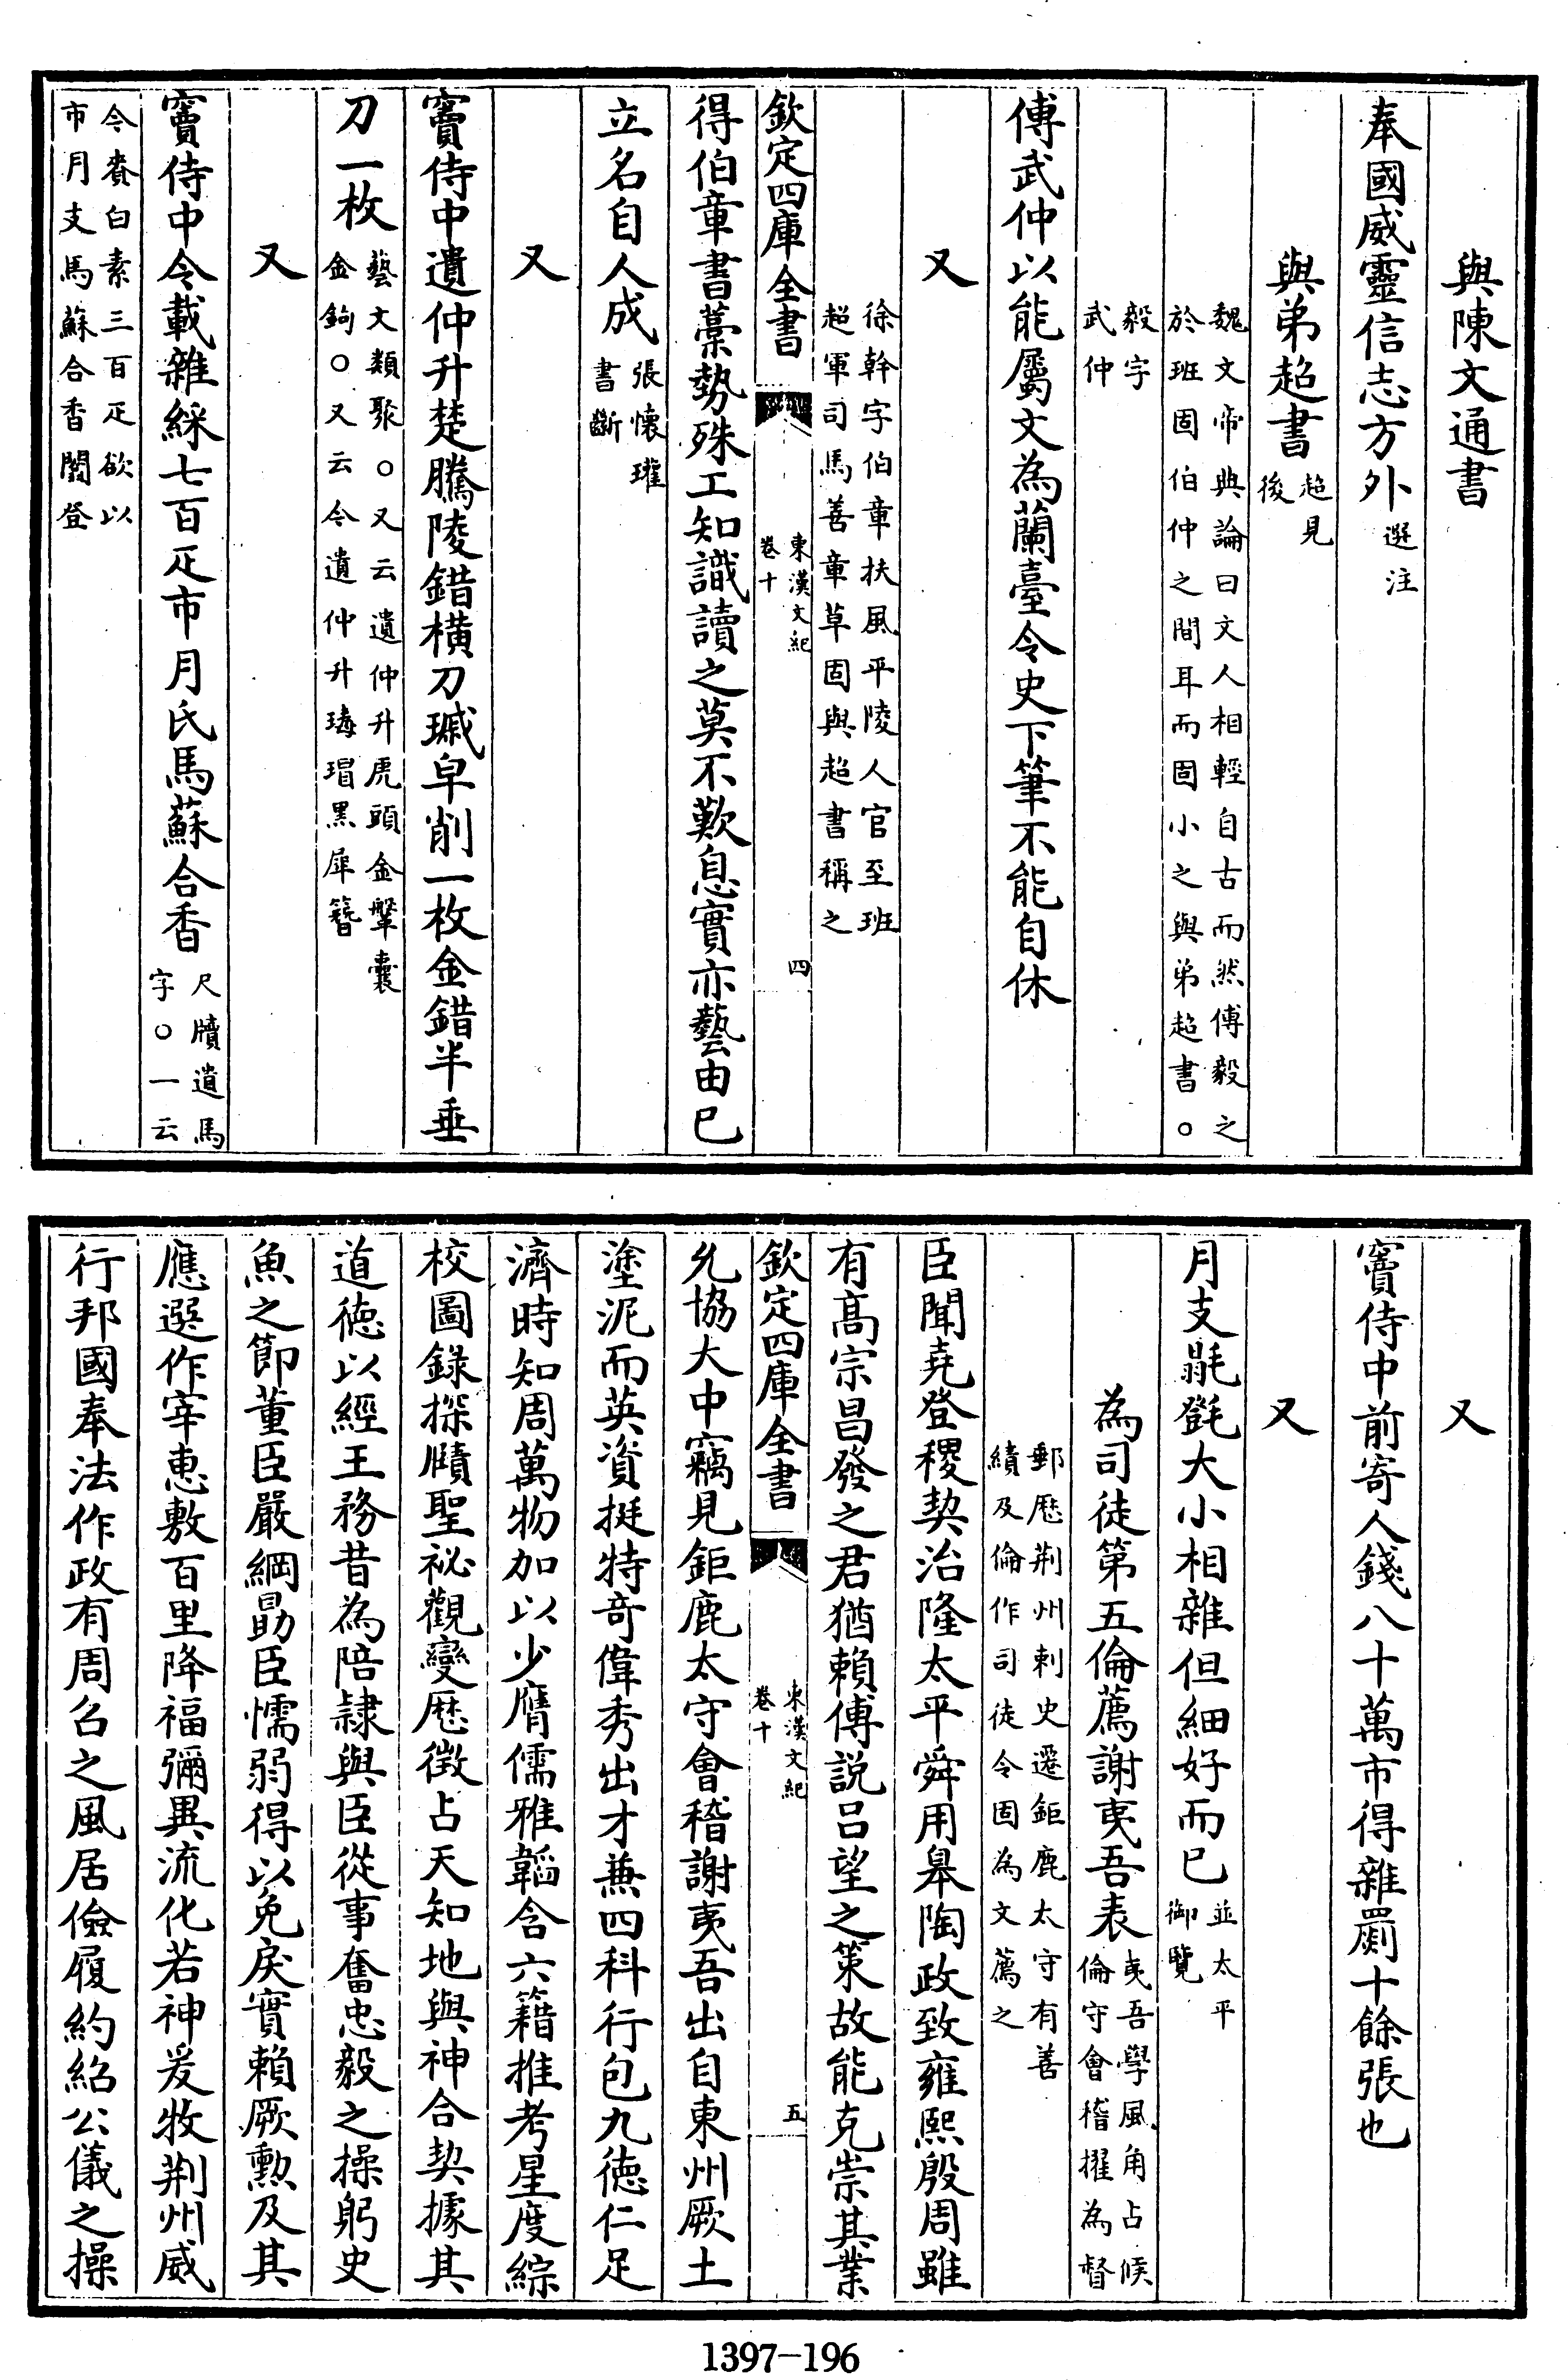 與陳文通書
奉國威靈信志方外選注
與弟超書超見後
魏文帝典論曰文人相輕自古而然傅毅之
於班固伯仲之間耳而固小之與弟超書○
毅字
武仲
傅武仲以能屬文為蘭臺令史下筆不能自休
又
徐幹字伯章扶風平陵人官至班
超軍司馬善章草固與超書稱之
欽定四庫全書
東漢文紀
卷十
四
得伯章書藁勢殊工知識讀之莫不歎息實亦藝由已
立名自人成張懷瓘書斷
又
竇侍中遺仲升楚騰陵錯橫刀瑊皁削一枚金錯半垂
刀一枚藝文類聚○又云遺仲升虎頭金鞶囊金鉤○又云今遺仲升瑇瑁黑犀簪
又
竇侍中令載雜綵七百疋市月氏馬蘇合香尺牘遺馬字○一云
今賚白素三百疋欲以
市月支馬蘇合香闒登
又
竇侍中前寄人錢八十萬市得雜罽十餘張也
又
月支毾㲪大小相雜但細好而已並太平御覽
為司徒第五倫薦謝夷吾表夷吾學風角占候倫守會稽擢為督
郵歷荆州刺史遷鉅鹿太守有善
績及倫作司徒令固為文薦之
臣聞堯登稷契治隆太平舜用皐陶政致雍熙殷周雖
有髙宗昌發之君猶賴傅説吕望之策故能克崇其業
欽定四庫全書
東漢文紀
卷十
五
允協大中竊見鉅鹿太守會稽謝夷吾出自東州厥土
塗泥而英資挺特奇偉秀出才兼四科行包九徳仁足
濟時知周萬物加以少膺儒雅韜含六籍推考星度綜
校圖錄探賾聖祕觀變歴徴占天知地與神合契據其
道徳以經王務昔為陪隷與臣從事奮忠毅之操躬史
魚之節董臣嚴綱朂臣懦弱得以免戾實賴厥勲及其
應選作宰惠敷百里降福彌異流化若神爰牧荆州威
行邦國奉法作政有周召之風居儉履約紹公儀之操
1397-196